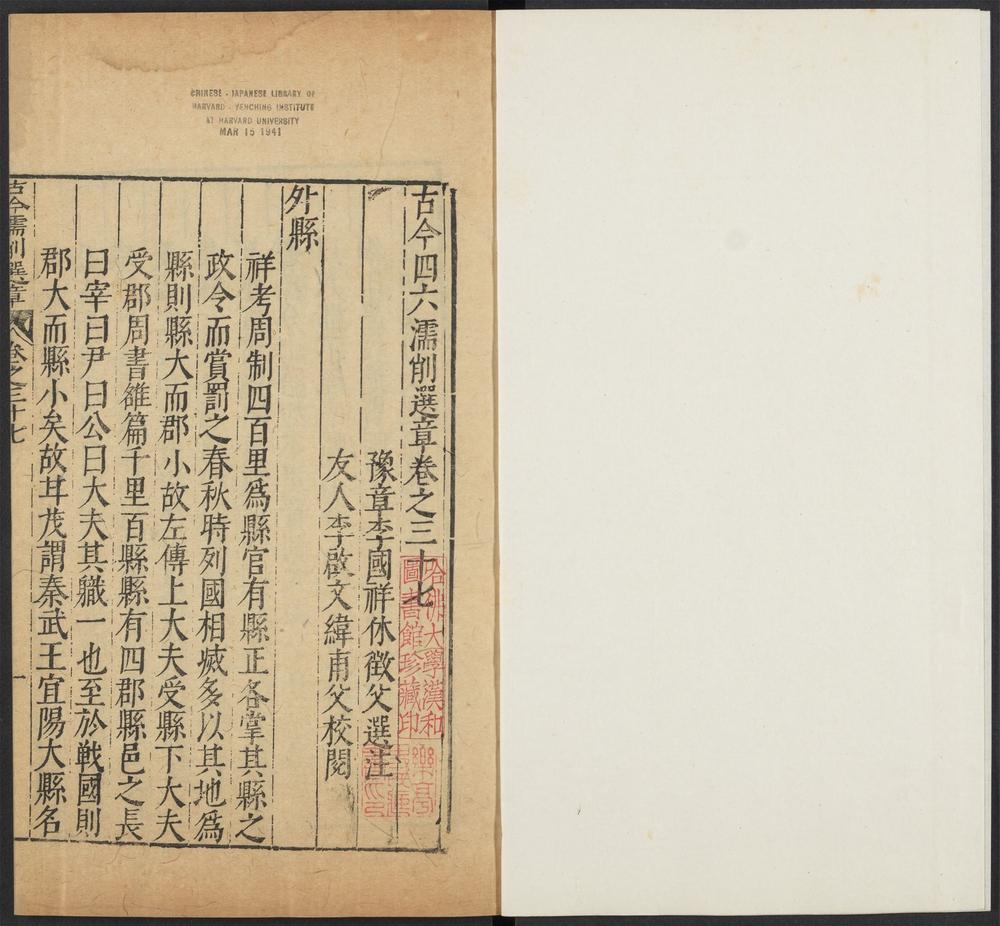 CHINESE - JAPANESE LIBRARY OF
HARVARD - YENCHING INSTITUTE
AT HARVARD UNIVERSITY
MAR 15 1941
古今四六濡削選章卷之三十七
豫章李國祥休徵父選注
友人李啟文緯甫父校閱
外縣
祥考周制四百里爲縣官有縣正各掌其縣之
政令而賞罰之春秋時列國相滅多以其地爲
縣則縣大而郡小故左傳上大夫受縣下大夫
受郡周書雒篇千里百縣縣有四郡縣邑之長
曰宰曰尹曰公曰大夫其職一也至於戰國則
郡大而縣小矣故甘茂謂秦武王宜陽大縣名
古今濡削選章
卷之三十七
一
哈佛大學漢和
圖書館珍藏印